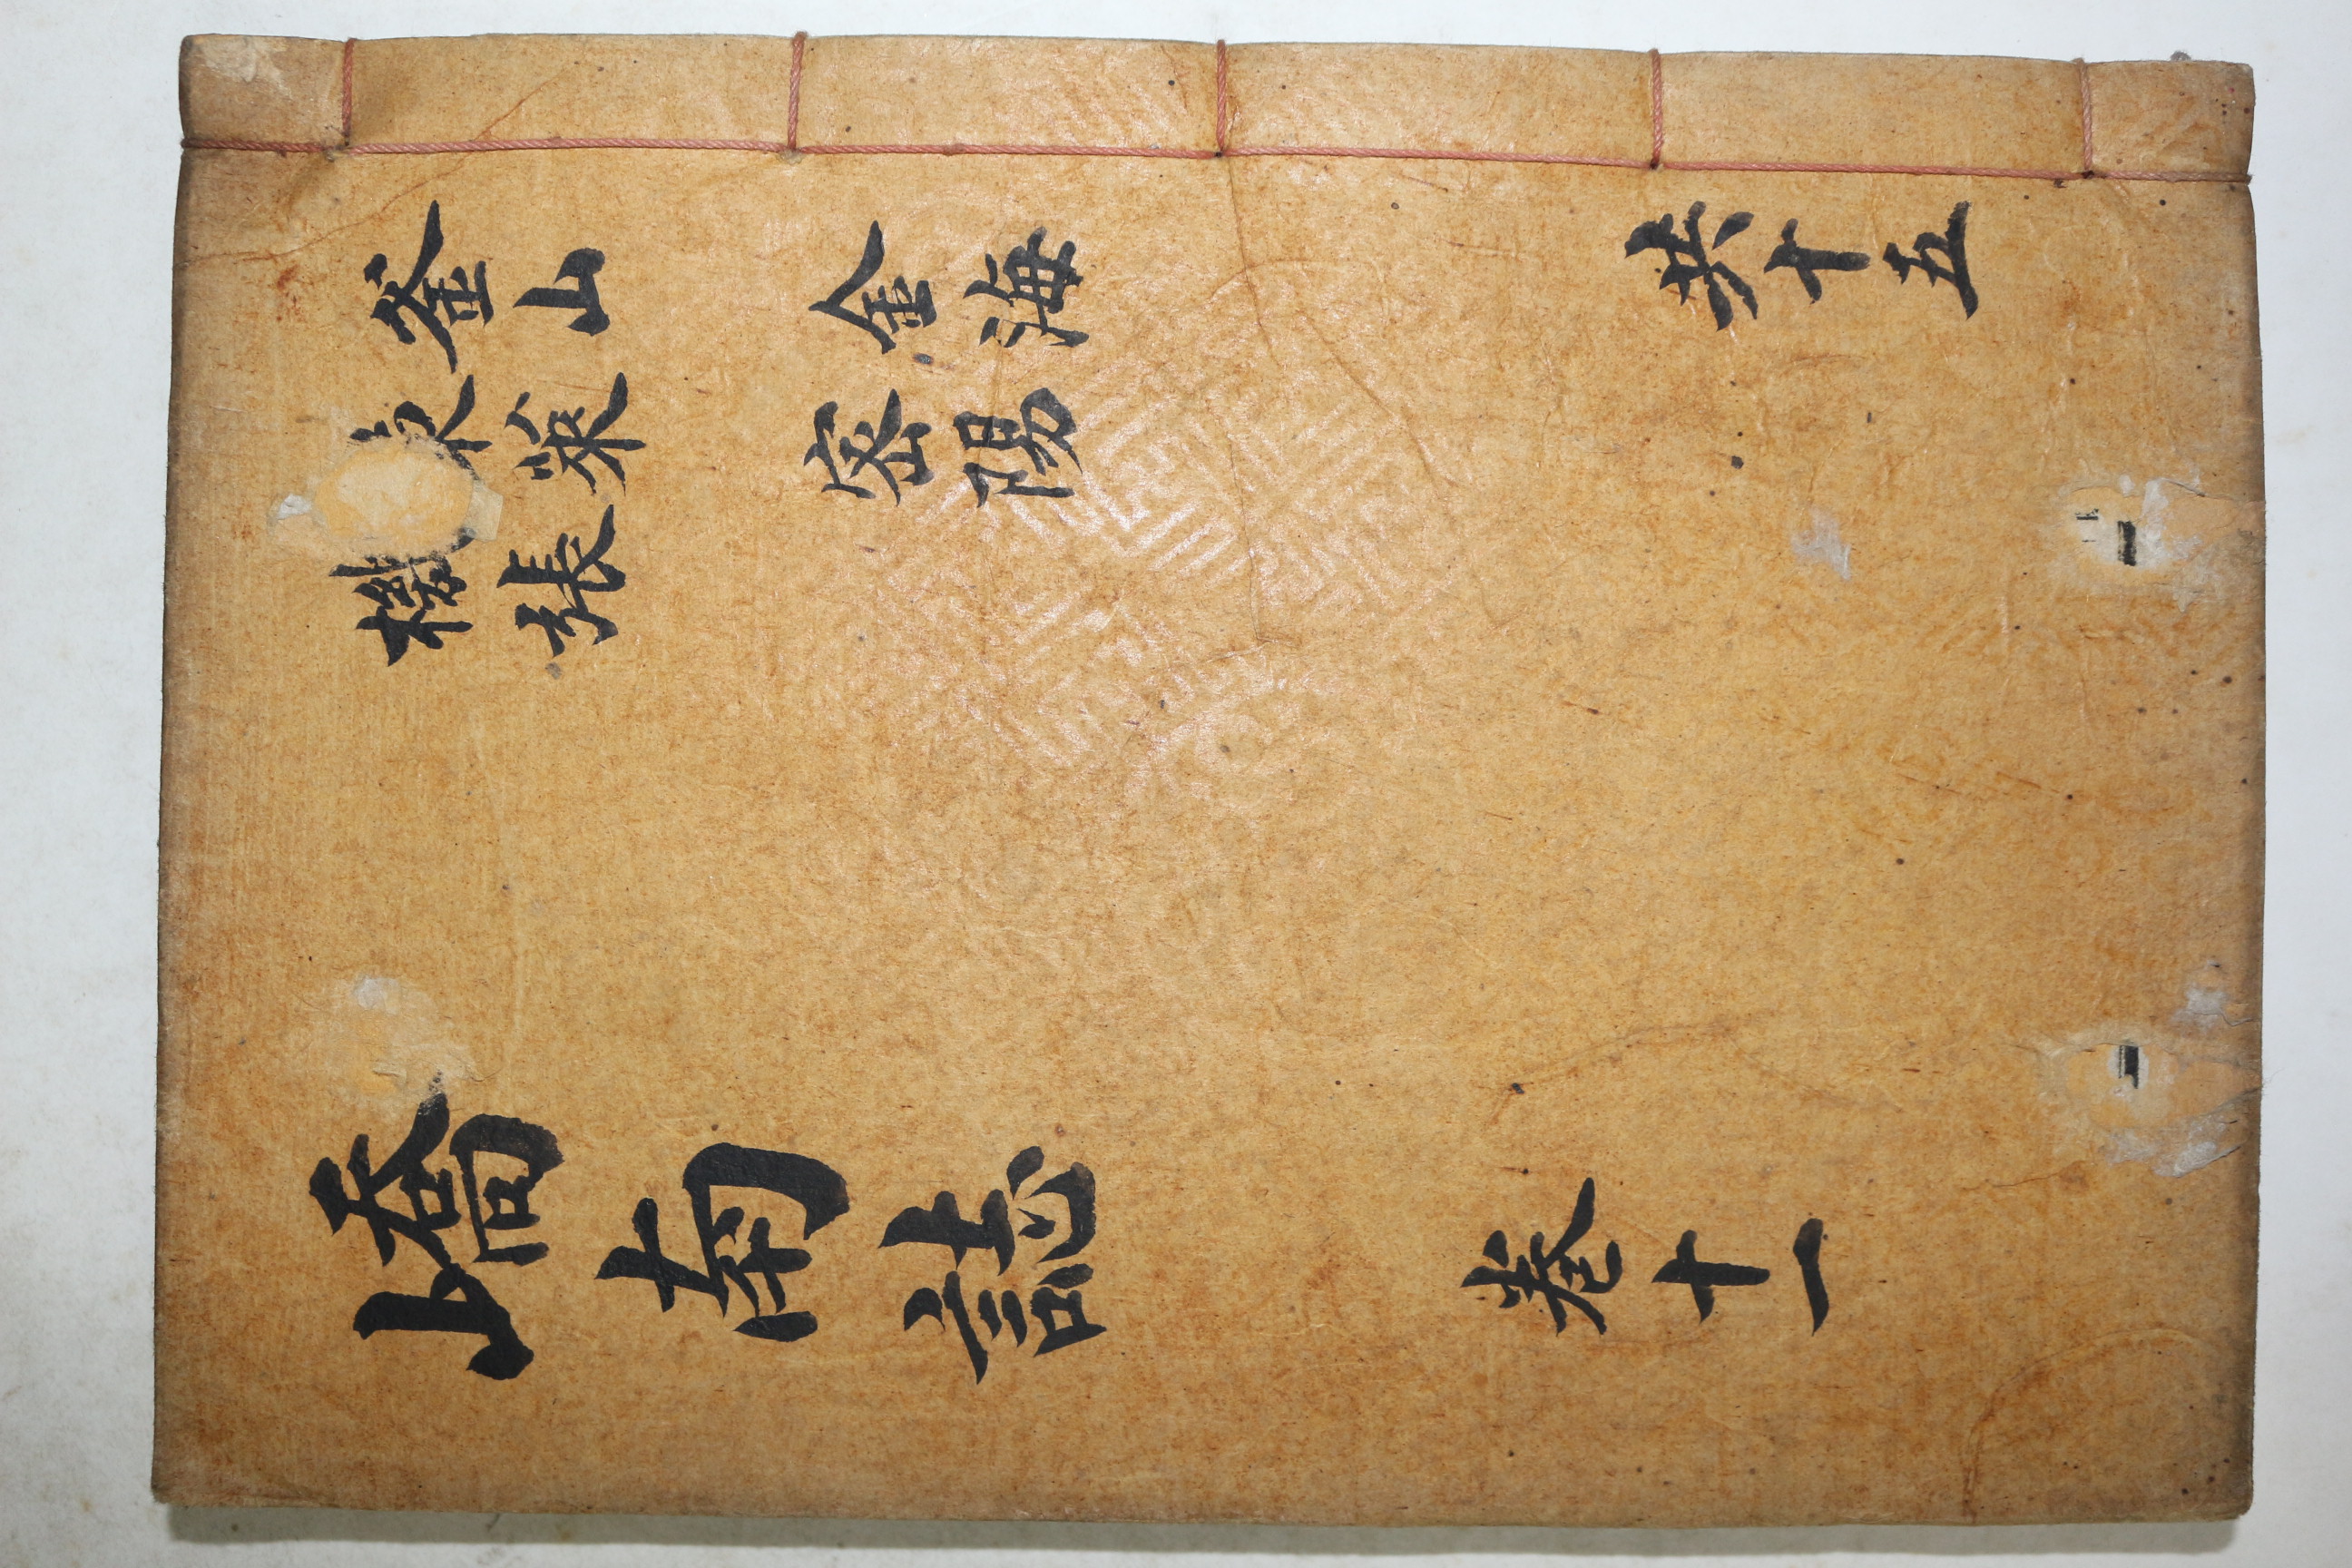 釜山
東萊
機張
金海
密陽
共十五
嶠南誌
卷十一